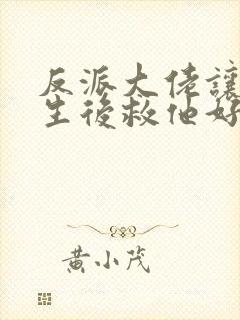 反派大佬讓
生後救他好
黃小茂